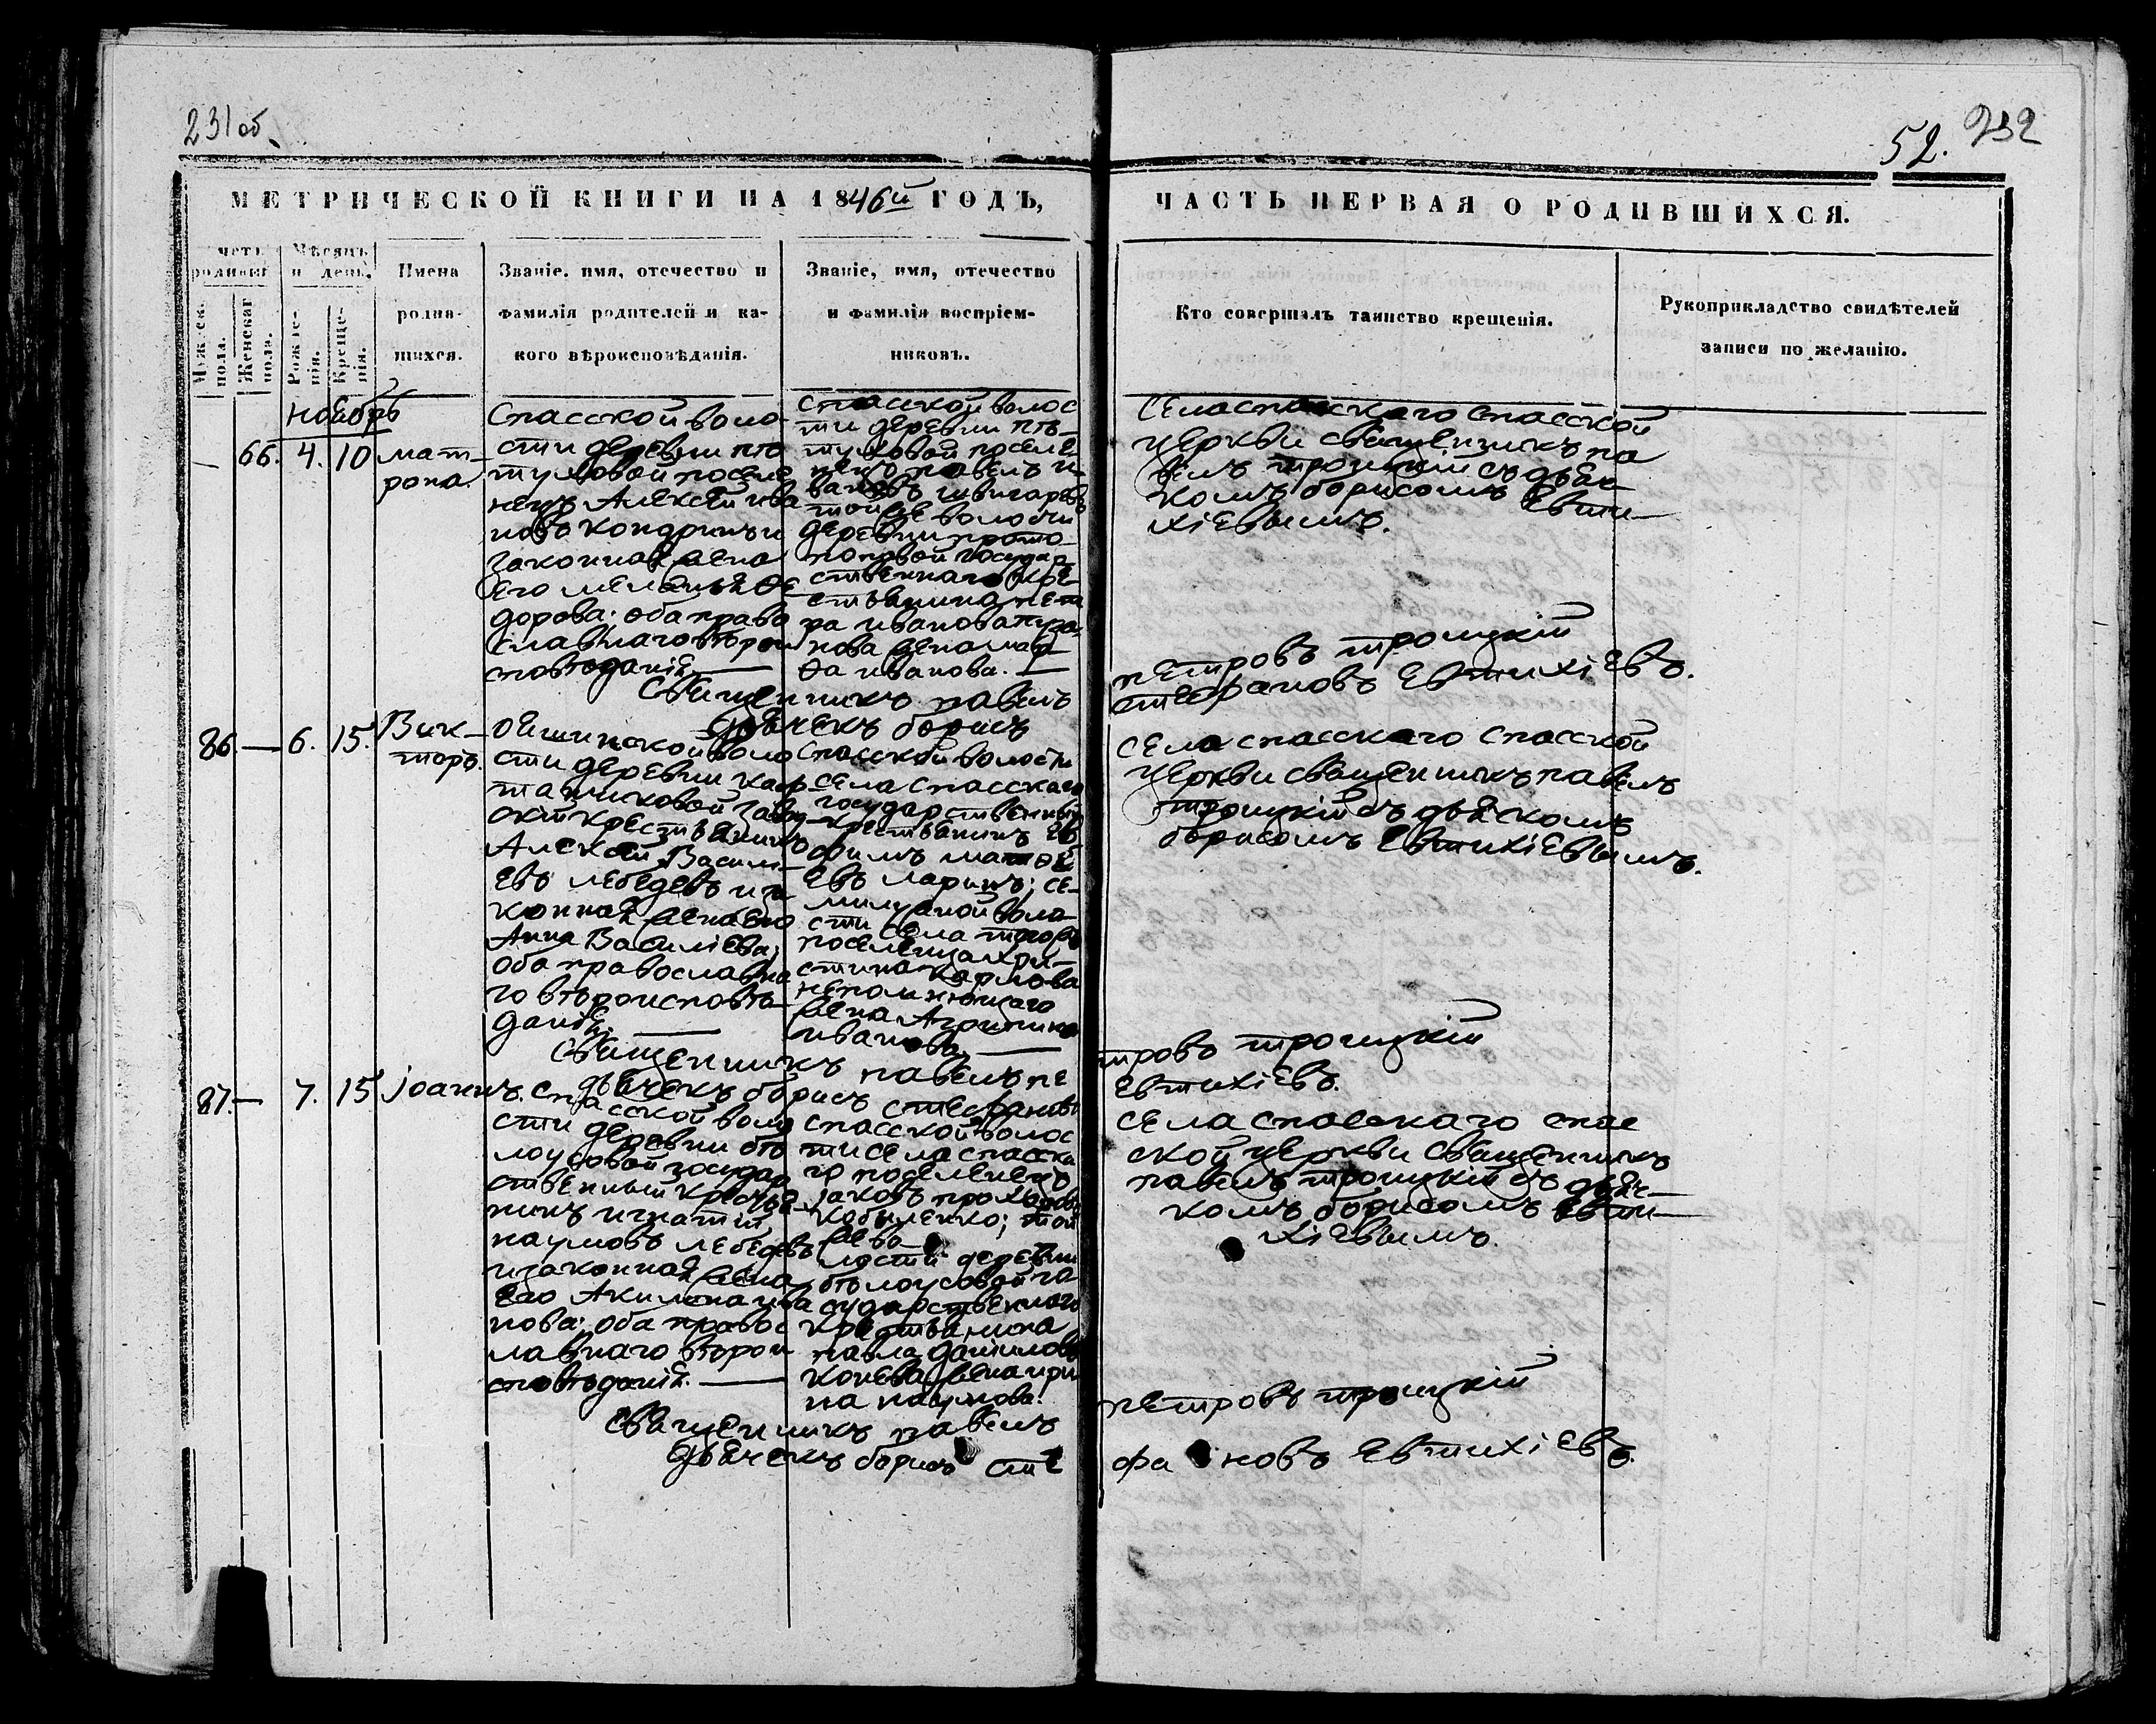 231 об
52. 232
МЕТРИЧЕСКОЙ КНИГИ НА 1846й ГОДЪ,
ЧАСТЬ ПЕРВАЯ О РОДИВШИХСЯ.
Мѣсяцъ
и день.
Мужеск. пола.
Женскаг пола.
Рожде-
нія.
Креще-
нія.
Имена
родив-
шихся.
Званіе, имя, отечество и
фамилія родителей и ка-
кого вѣроисповѣданія.
Званіе, имя, отечество
и фамилія воспріем-
никовъ.
Кто совершалъ таинство крещенія.
Рукоприкладство свидѣтелей
записи по желанію.
ноябрь
— 66. 4. 10
мат-
рона.
Спасской воло-
сти деревни пѣ
туховой поселе
нецъ Алексѣй ива
новъ кондринъ и
законная жена
его меланья Ѳе
дорова; оба право
славнаго вѣрои
сповѣданія. —
Спасской волос
ти деревни пѣ-
туховой поселе
нецъ павелъ и-
вановъ
той же волости
деревни прото
поповой государ
ственнаго кре-
стьянина пет
ра иванова
нова жена мар
ѳа иванова. —
Села спасскаго спасской
церкви священникъ па
велъ троицкій съ дьяч
комъ борисомъ Евти-
хіевымъ.
Священникъ павелъ
петровъ троицкій
дьячекъ борисъ
стефановъ Евтихіевъ.
86. — 6. 15.
Вик-
торъ.
сти деревни кар
таниковой завод
скій крестьянинъ
Алексѣй Василь-
евъ лебедевъ и за
конная жена его
Анна Василіева;
оба православна
го вѣроисповѣ-
данія. —
спасской волости
села спасскаго
государственный
крестьянинъ Еѳ
фимъ матѳе
евъ ларинъ; се-
милужной воло
сти села
поселенца хри-
стина карлова
непомнющаго
жена Агрипина
иванова. —
села спасскаго спасской
церкви священникъ павелъ
троицкій съ дьячкомъ
борисомъ Евтихіевымъ.
Священникъ павелъ пе
тровъ троицкій
дьячекъ борисъ стефановъ
Евтихіевъ.
87. — 7. 15
іоаннъ.
спасской воло
сти деревни бѣ
лоусовой государ
ственный крестья
нинъ игнатій
наумовъ лебедевъ
и законная жена
его Акилина ива
нова; оба правос
лавнаго вѣрои
сповѣданія. —
спасской волос
ти села спасска
го поселенецъ
іаковъ
кобыленко; той
же во
лости деревни
бѣлоусовой го
сударственнаго
крестьянина
павла данилова
конева жена ири
на наумова.
села спасскаго спас
ской церкви священникъ
павелъ троицкій съ дьяч-
комъ борисомъ Евти-
хіевымъ.
священникъ павелъ
петровъ троицкій
дьячекъ борисъ сте
фа новъ Евтихіевъ.